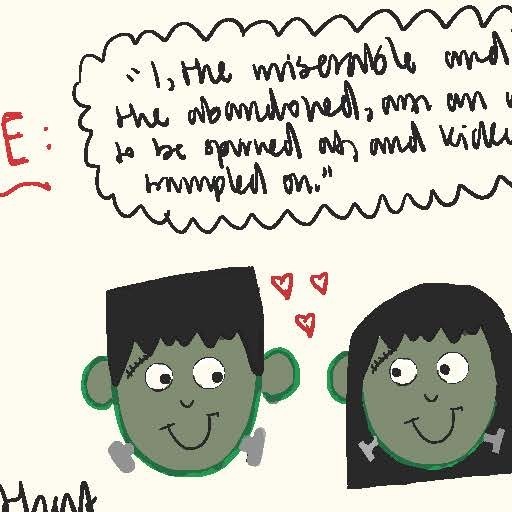 E:
"I, the miserable and
the abandoned, am an
to be spurned at, and kicked
trampled on."